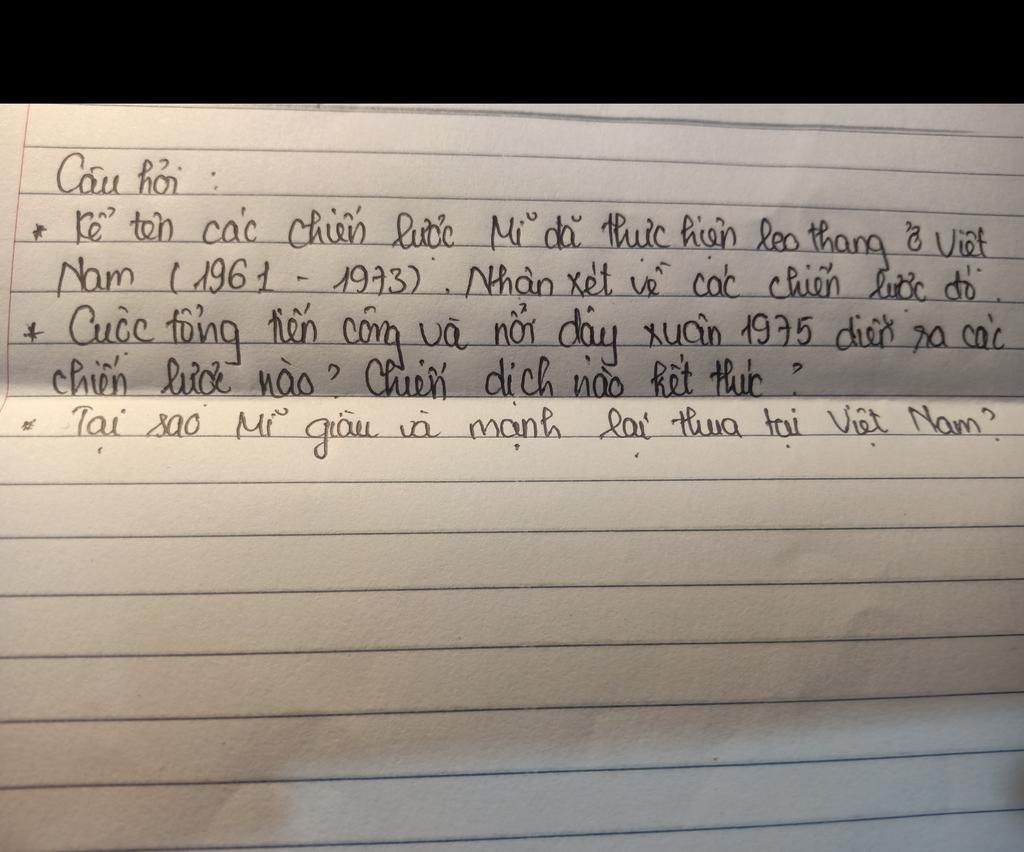 Câu hỏi :
* Kể tên các chiến lược Mĩ đã thực hiện leo thang ở Việt
Nam (1961 - 1973). Nhận xét về các chiến lược đó.
* Cuộc tổng tiến công và nổi dậy xuân 1975 diễn ra các
chiến lược nào? Chiến dịch nào kết thúc?
* Tại sao Mĩ giàu và mạnh lại thua tại Việt Nam?